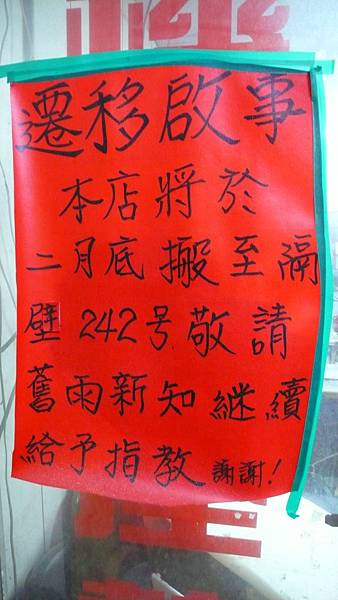 遷移啟事
本店將於
二月底搬至隔
壁242号敬請
舊雨新知繼續
給予指教 謝謝!